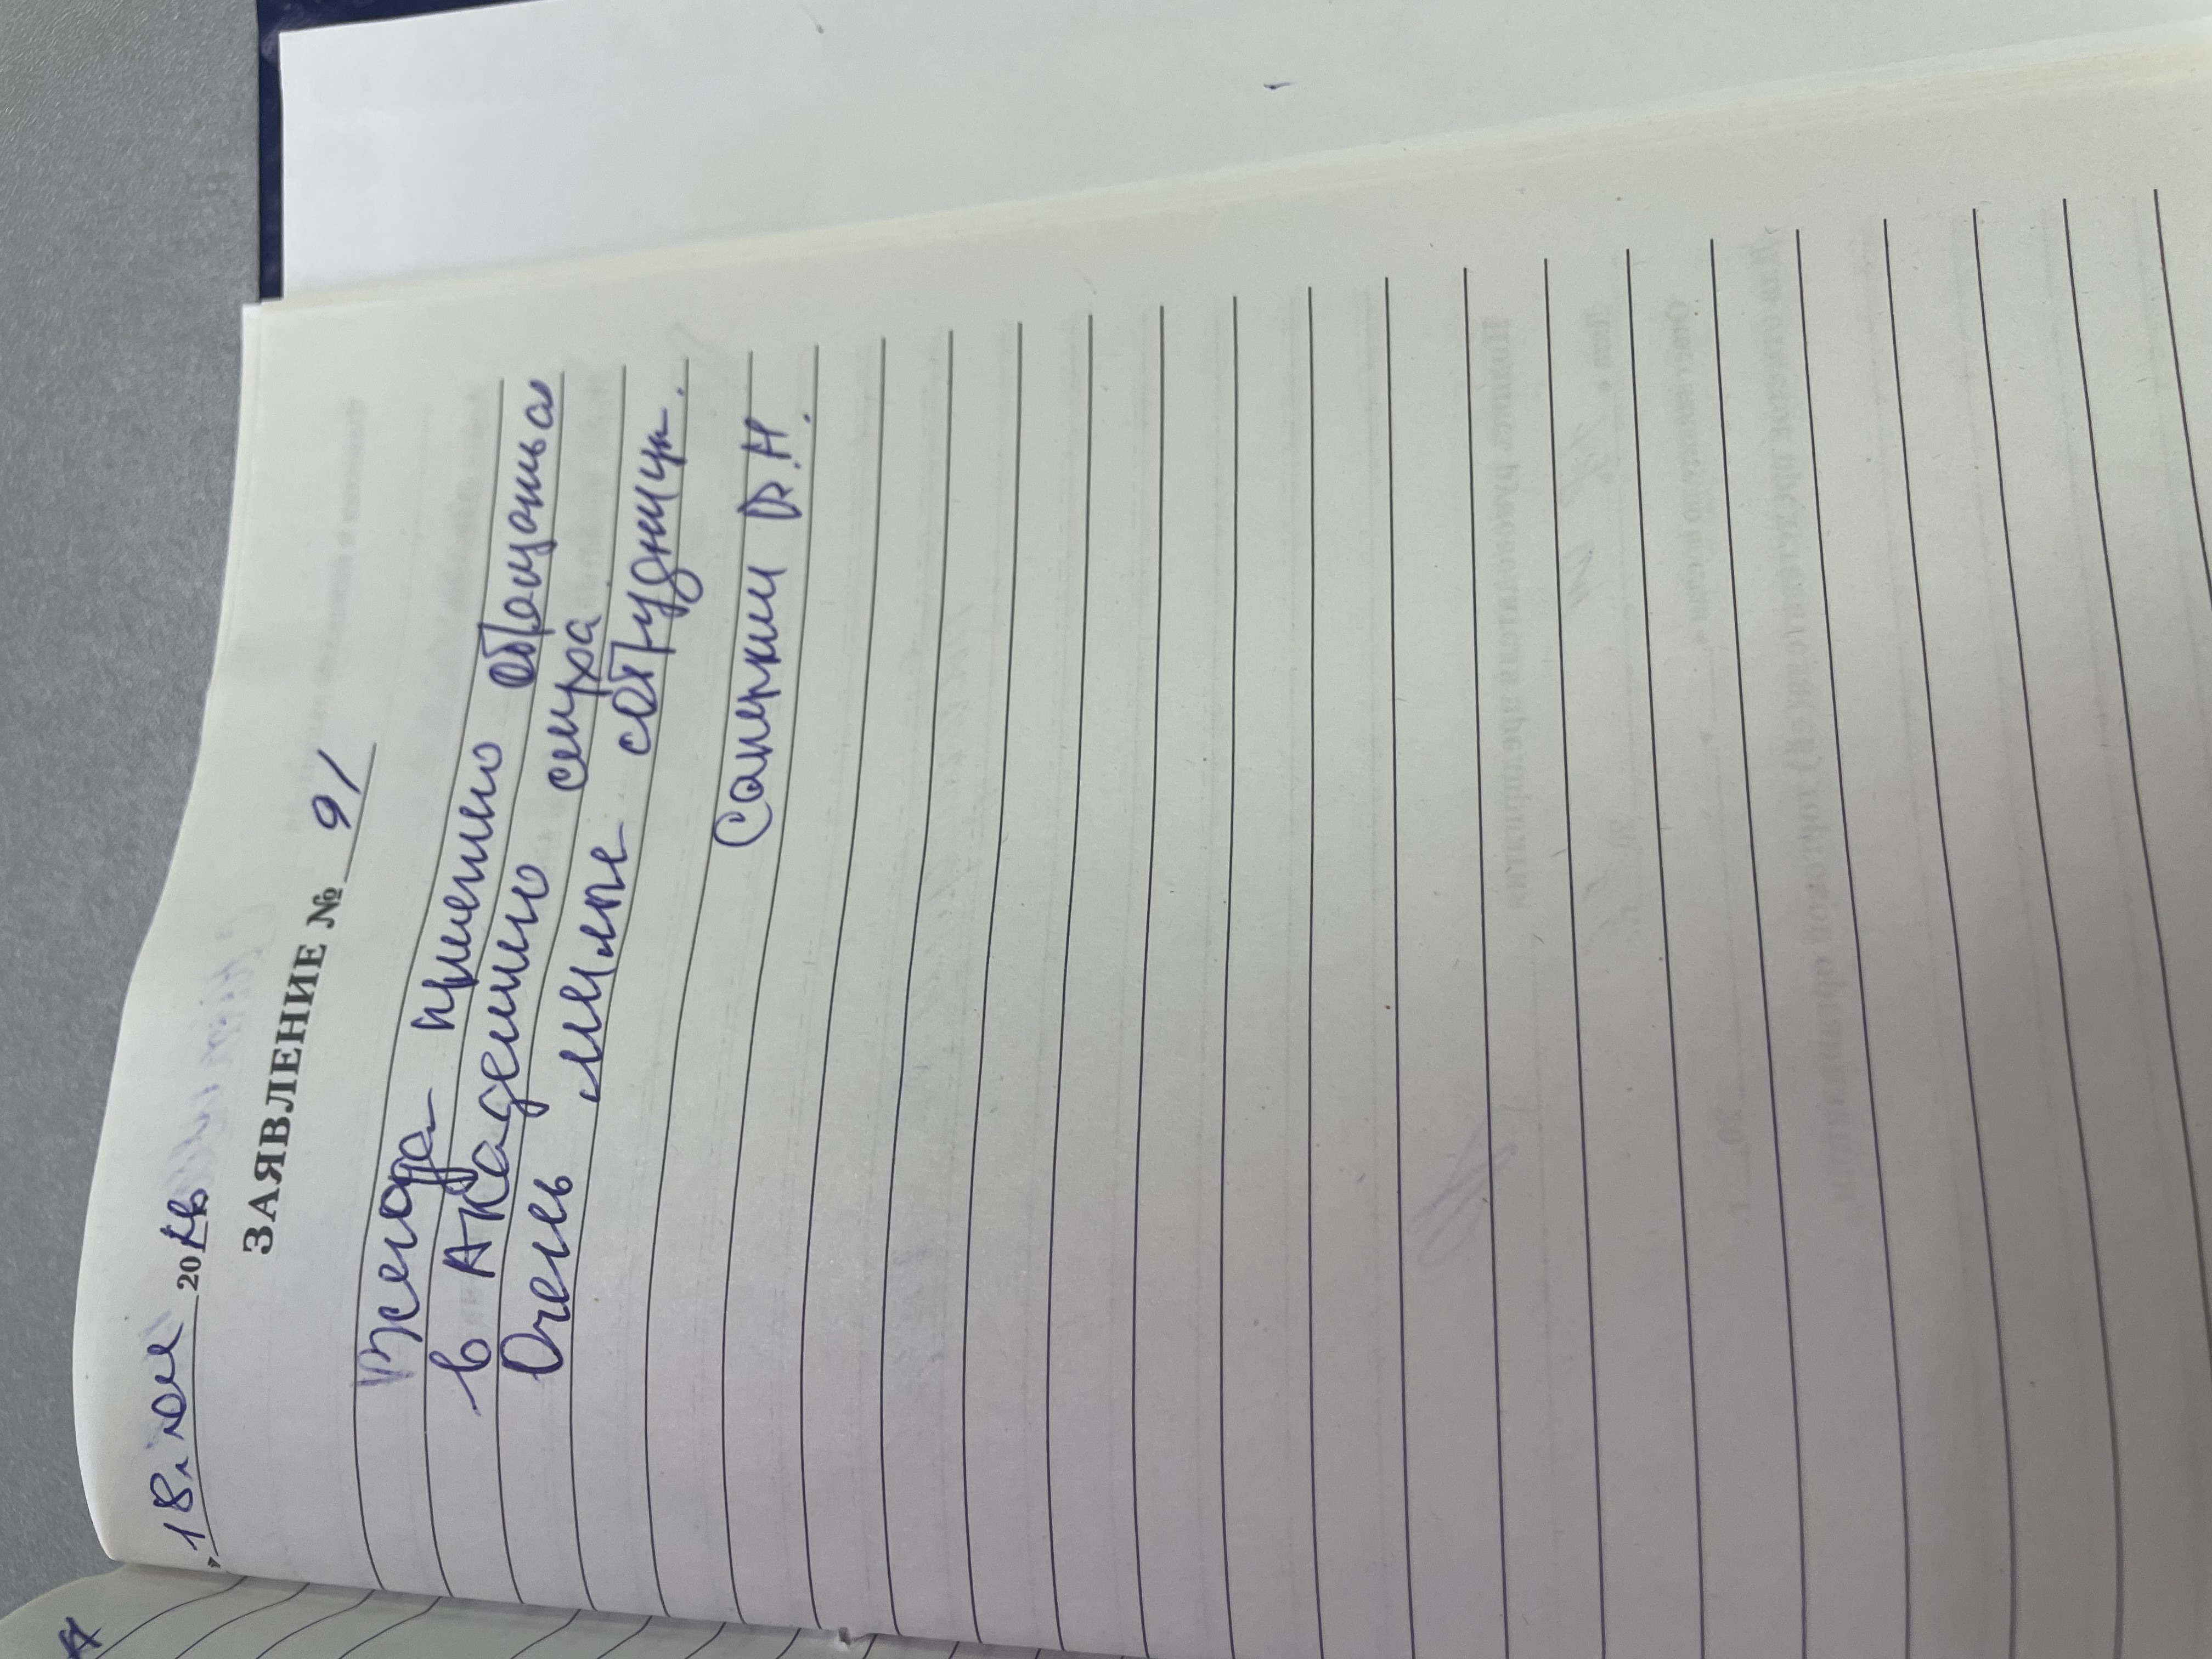 18. июля 20
ЗАЯВЛЕНИЕ № 91
Всегда приятно обращаться
в Академию слуха
Очень милые сотрудницы.
В.Н.